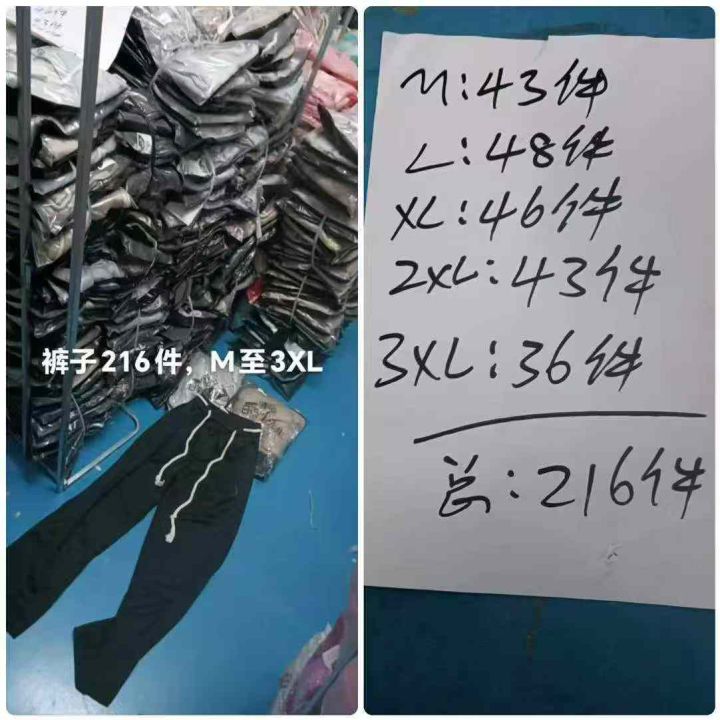 裤子216件，M至3XL
M:43件
L:48件
XL:46件
2XL:43件
3XL:36件
总:216件